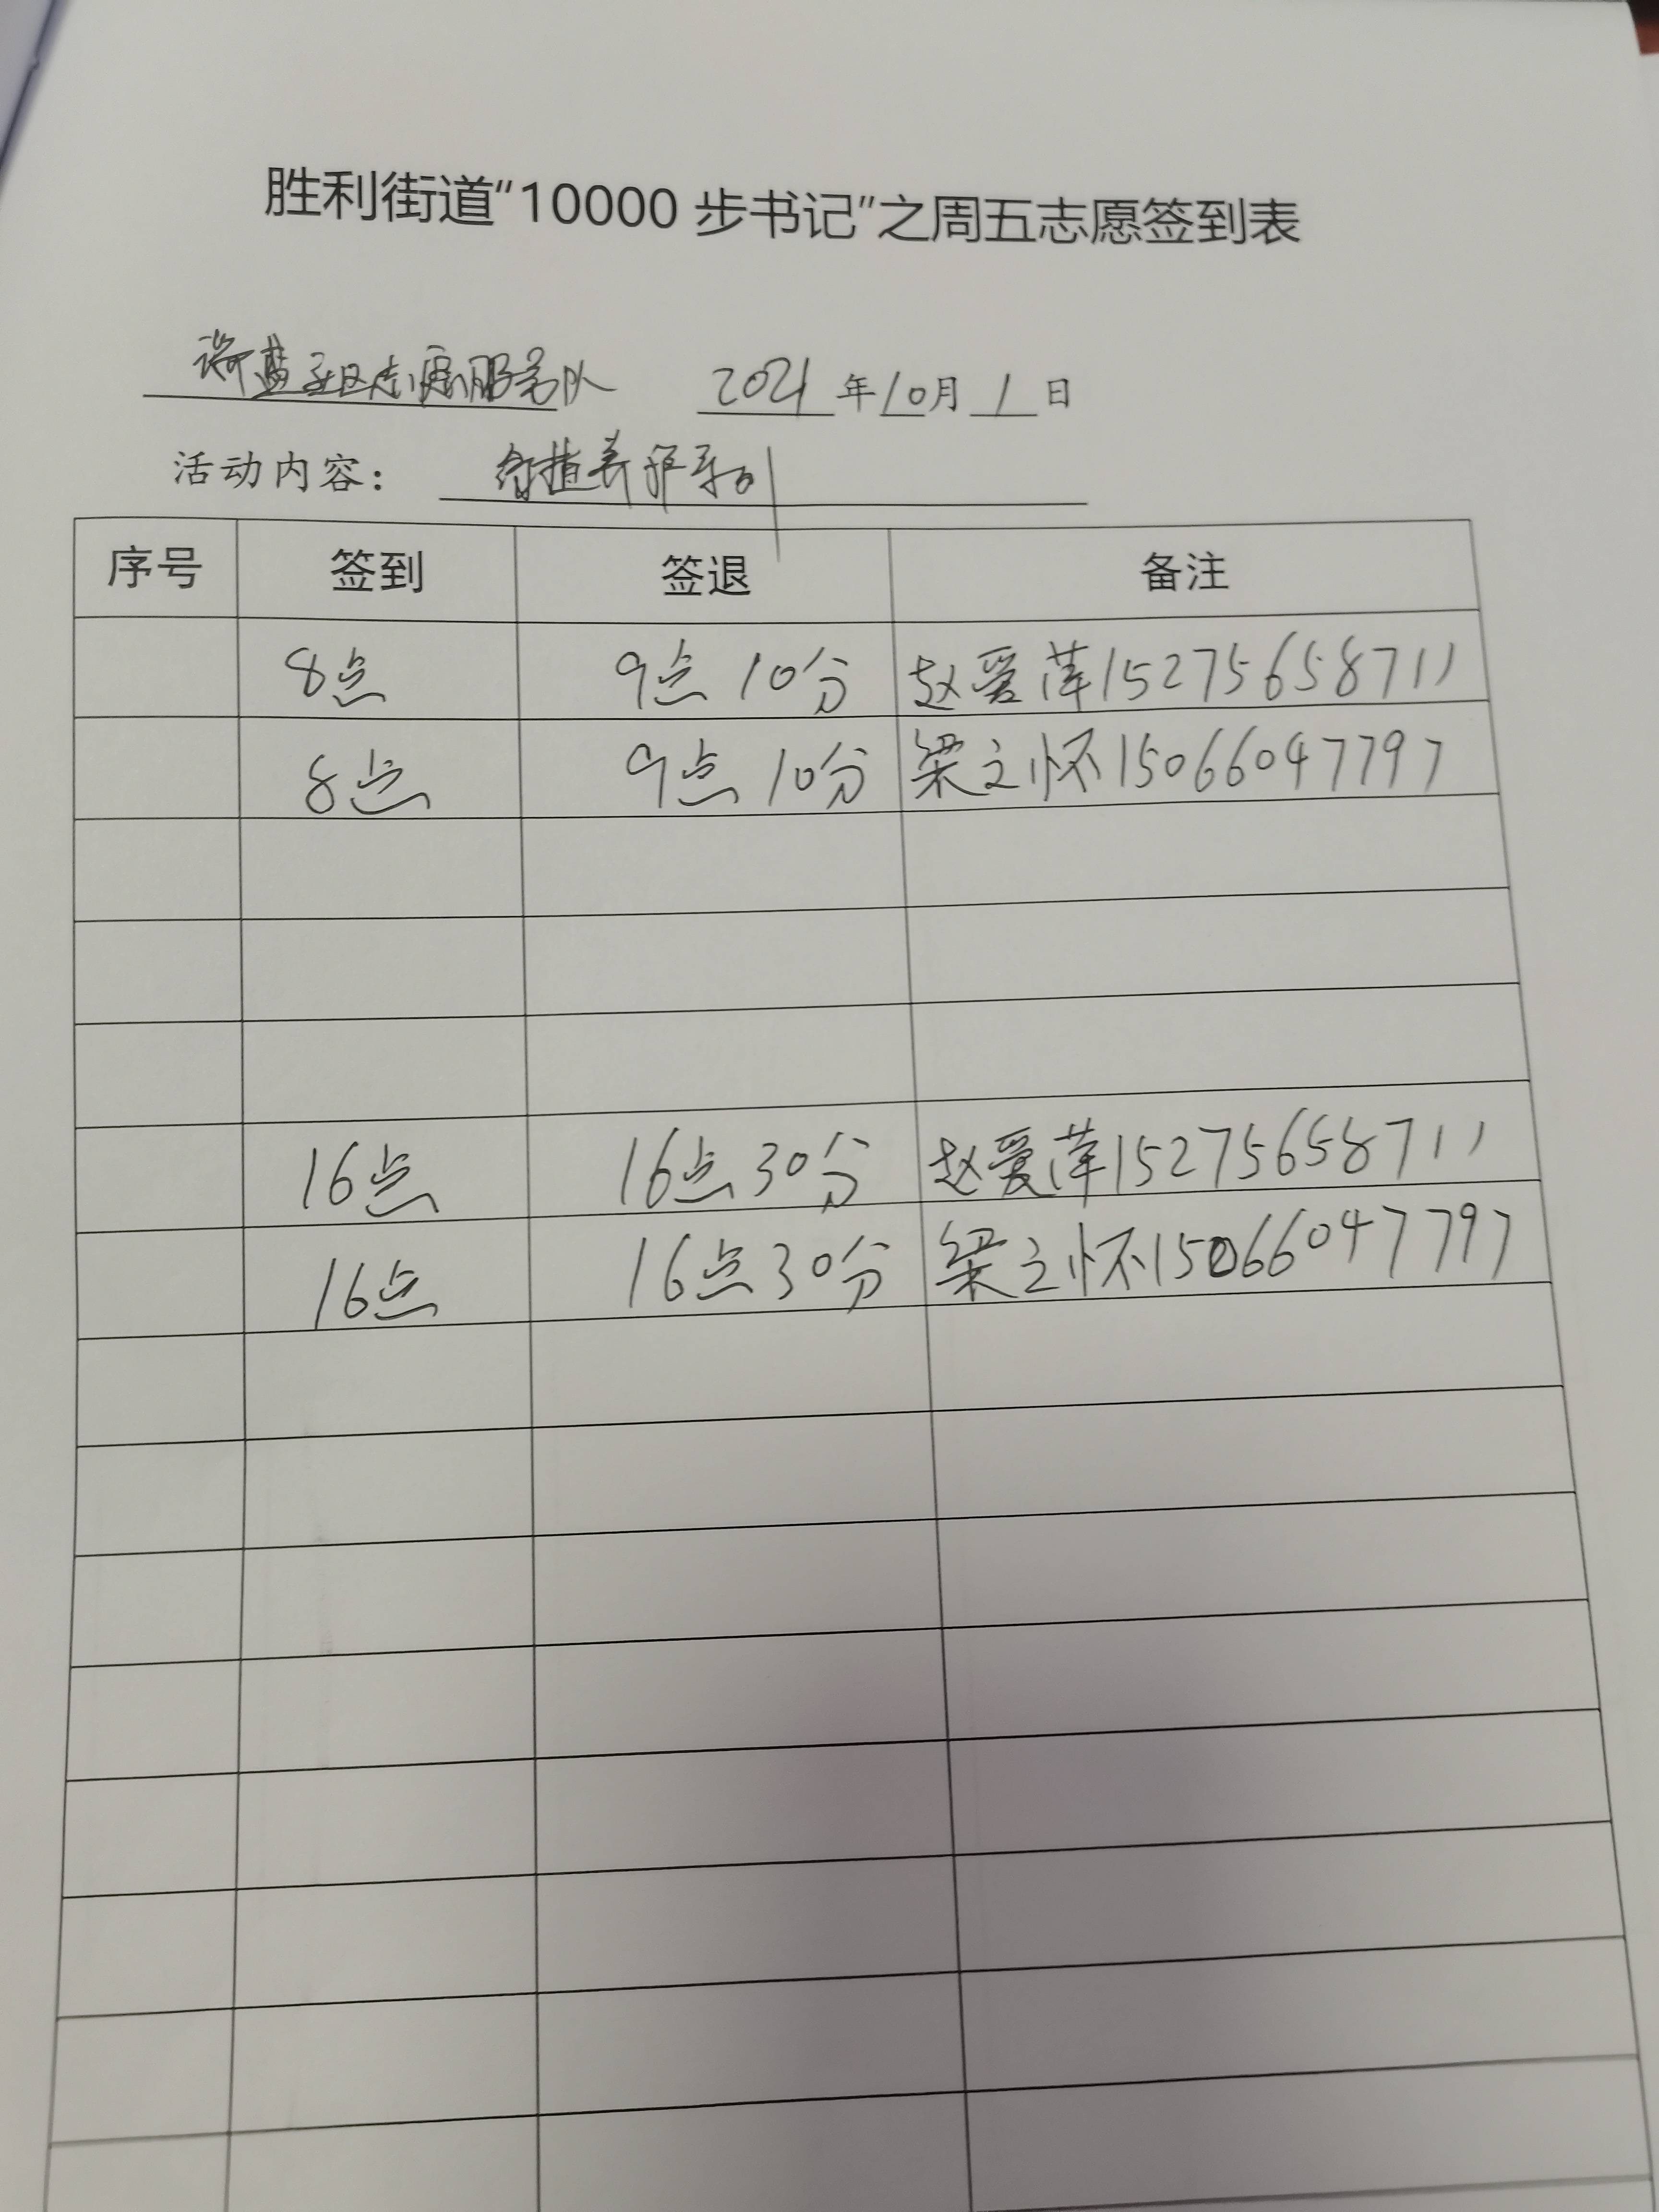 胜利街道“10000步书记”之周五志愿签到表
社区志愿服务队 2021年10月1日
活动内容: 绿植养护系列
序号 签到 签退 备注
8点 9点10分 赵爱萍15275658711
8点 9点10分 梁之怀15066047797
16点 16点30分 赵爱萍15275658711
16点 16点30分 梁之怀15066047797